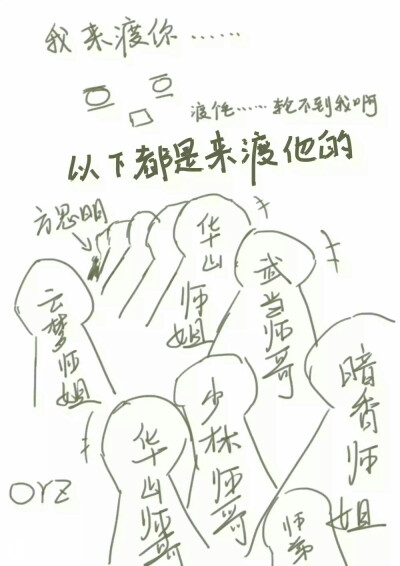 我来渡你……
渡他……轮不到我啊
以下都是来渡他的
方思明
华山师姐
武当师哥
云梦师姐
暗香师姐
少林师哥
华山师哥
师弟
OYZ